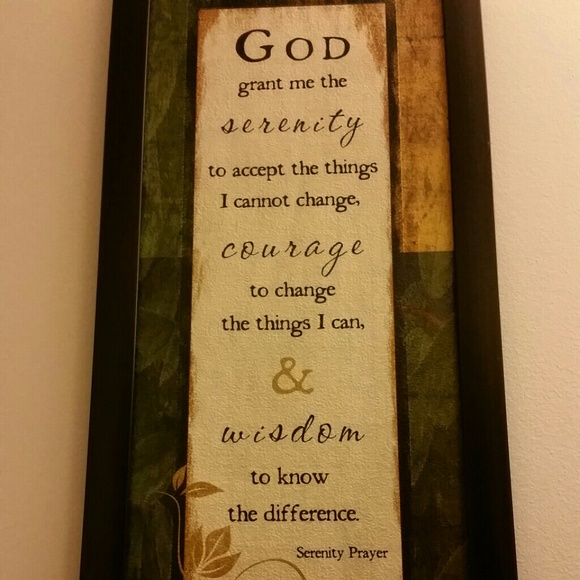 GOD
grant me the
serenity
to accept the things
I cannot change,
courage
to change
the things I can,
&
wisdom
to know
the difference.
Serenity Prayer